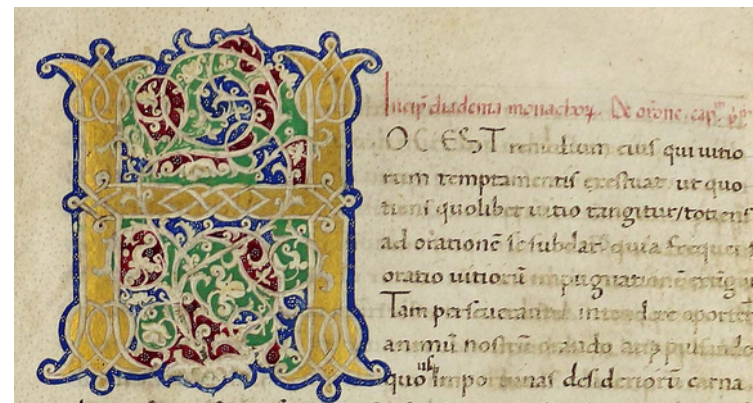 Incip̄ diadema monachoꝝ. De or̄one. cap^m. p^m
HOC EST remedium eius qui uitio
rum temptamentis exestuat. ut quo
tiens quolibet uitio tangitur/totiens
ad orationē se subdat. quia frequens
oratio uitiorū impugnationē extīgu
Tam perseueranter intendere oportet
animū nostrū orando atq̨ pulsando
quo usq̨ importunas desideriorū carna